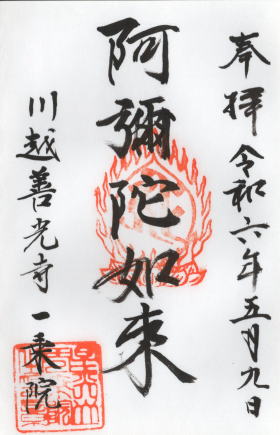 奉拝 令和六年五月九日
阿彌陀如来
川越善光寺一乗院